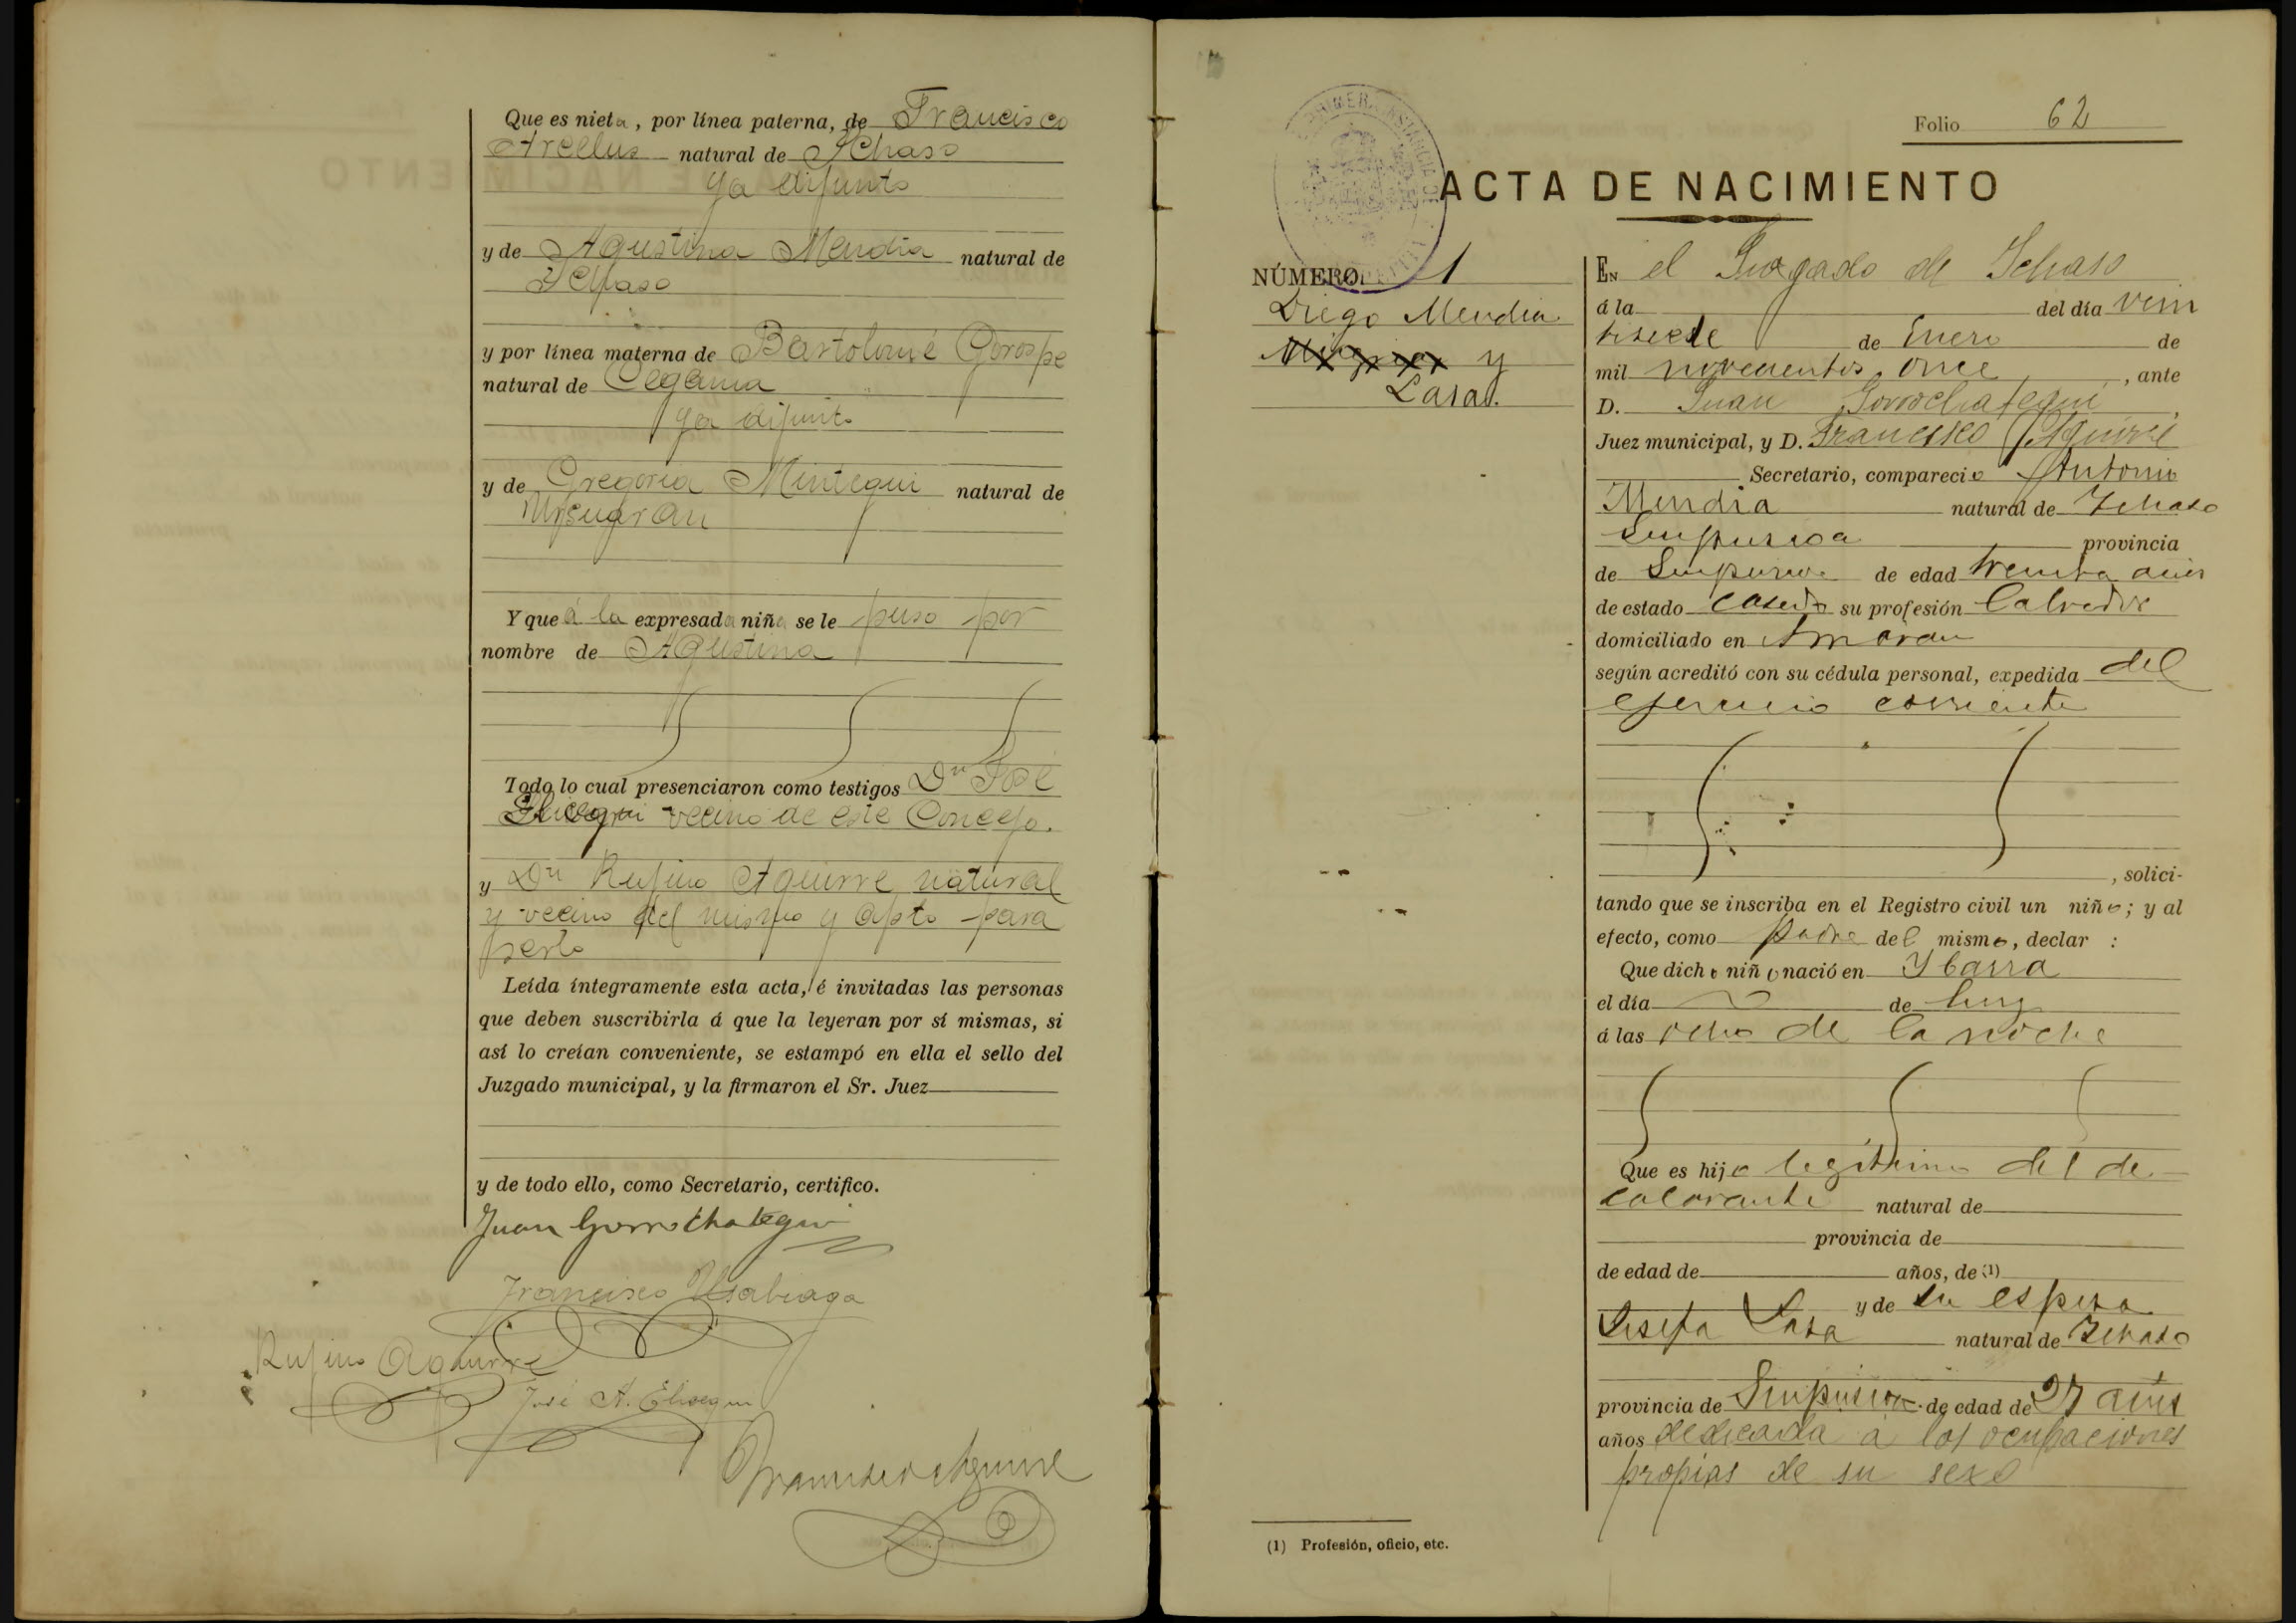 Que es nieta, por línea paterna, de Francisco
Arcelus natural de Ichaso
ya difunto
y de Agustina Mendia natural de
Ichaso
y por línea materna de Bartolomé Gorospe
natural de Cegama
ya difunto
y de Gregoria Mintegui natural de
Y que á la expresada niña se le puso por
nombre de Agustina
Todo lo cual presenciaron como testigos Dn José
Elicegui vecino de este Concejo.
y Dn Rufino Aguirre natural
y vecino del mismo y apto para
serlo
Leída íntegramente esta acta, é invitadas las personas
que deben suscribirla á que la leyeran por sí mismas, si
así lo creían conveniente, se estampó en ella el sello del
Juzgado municipal, y la firmaron el Sr. Juez
y de todo ello, como Secretario, certifico.
Juan Gorrochategui
Francisco Usabiaga
Rufino Aguirre
José A. Elicegui
Francisco Aguirre
PRIMERA INSTANCIA DE
Folio 62
ACTA DE NACIMIENTO
NÚMERO 1
Diego Mendia
y
Lasa.
En el Juzgado de Ichaso
á la del día vein
tisiete de Enero de
mil novecientos once, ante
D. Juan Gorrochategui,
Juez municipal, y D. Francisco Aguirre
Secretario, compareció Antonio
Mendia natural de Ichaso
Guipuzcoa provincia
de Guipuzcoa de edad treinta años
de estado casado su profesión labrador
domiciliado en
según acreditó con su cédula personal, expedida del
ejercicio corriente
, solici-
tando que se inscriba en el Registro civil un niño; y al
efecto, como padre del mismo, declar :
Que dicho niño nació en Ybarra
el día de hoy
á las ocho de la noche
Que es hijo legitimo del de
clarante natural de
provincia de
de edad de años, de (1)
y de su esposa
Josefa Lasa natural de Ichaso
provincia de Guipuzcoa de edad de 27 años
años dedicada á las ocupaciones
propias de su sexo
(1) Profesión, oficio, etc.